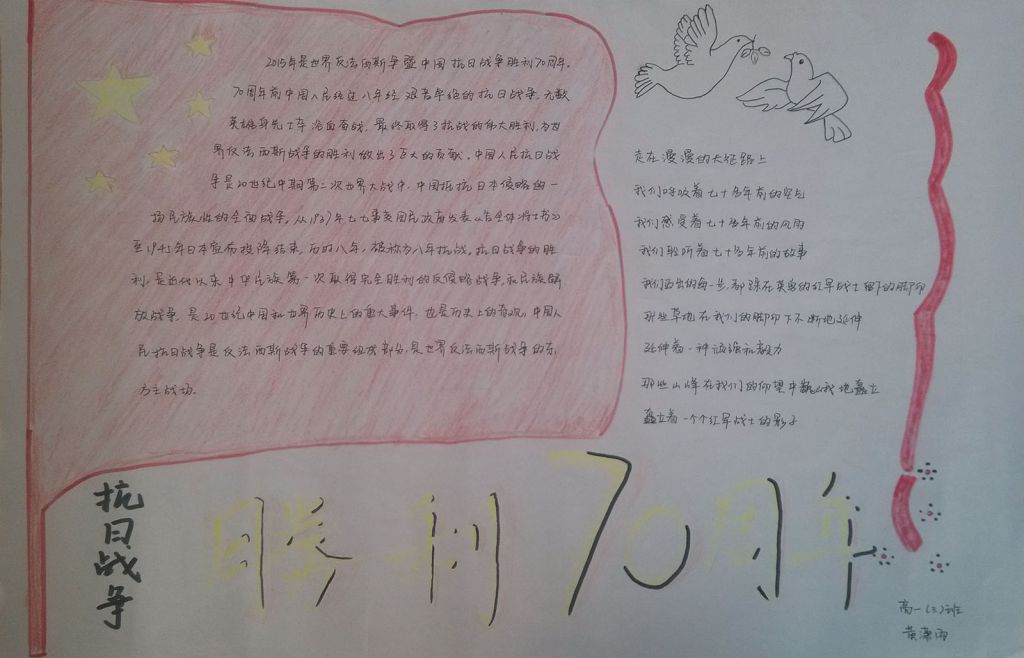 2015年是世界反法西斯争暨中国抗日战争胜利70周年。
70周年前中国人民经过八年经艰苦卓绝的抗日战争。无数
英雄身先士卒浴血奋战，最终取得了抗战的伟大胜利，为世
界反法西斯战争的胜利做出了巨大的贡献。中国人民抗日战
争是20世纪中期第二次世界大战中，中国抵抗日本侵略的一
场民族性的全面战争。从1937年七七事变国民政府发表《告全体将士书》
至1945年日本宣布投降结束，历时八年，被称为八年抗战。抗日战争的胜
利，是近代以来中华民族第一次取得完全胜利的反侵略战争和民族解
放战争，是20世纪中国和世界历史上的重大事件，也是历史上的奇观，中国人
民抗日战争是反法西斯战争的重要组成部分，是世界反法西斯战争的东
方主战场。
走在漫漫的长征路上
我们呼吸着七十多年前的空气
我们感受着七十多年前的风雨
我们聆听着七十多年前的故事
我们迈出的每一步，都踩在英勇的红军战士留下的脚印
那些草地在我们的脚印下不断地延伸
延伸着一种顽强和毅力
那些山峰在我们的仰望中巍峨地矗立
矗立着一个个红军战士的影子
抗日战争
胜利70周年
高一(3)班
黄潇雨